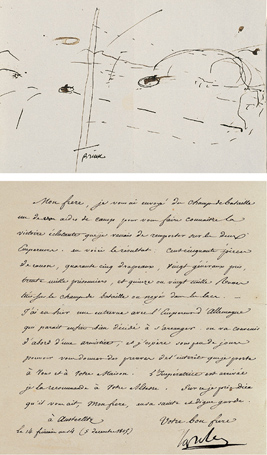 Mon frère, je vous ai envoyé du champ de bataille
un de vos aides de camp pour vous faire connaître la
victoire éclatante que je venais de remporter sur les deux
Empereurs. en voici le résultat. cent cinquante pièces
de canon, quarante cinq drapeaux, vingt généraux pris,
trente mille prisonniers, et quinze ou vingt mille Russes
sur le champ de bataille ou noyés dans les lacs.
J'ai eu hier une entrevue avec l'Empereur d'Allemagne
qui parait enfin bien décidé à s'arranger. on va convenir
d'abord d'une armistice, et j'espère sous peu de jours
pouvoir vous donner des preuves de l'intérêt que je porte
à Vous et à Votre Maison. L'Impératrice est arrivée
je la recommande à Votre Altesse. Sur ce je prie dieu
qu'il vous ait, Mon frère, en sa sainte et digne garde.
à Austerlitz Votre bon frère
le 14 frimaire an 14 (5 decembre 1805)